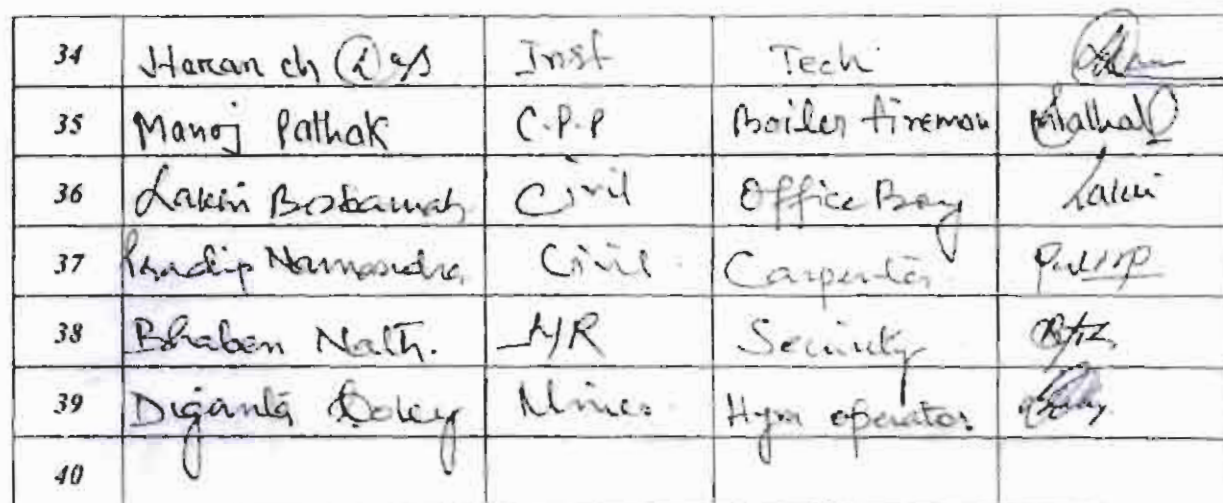 34 Haran ch Das Inst Tech
35 Manoj Pathak C.P.P Boiler fireman Pathak
36 Lakin Bosbamah Civil Office Boy Lakin
37 Pradip Namasudra Civil Carpenter
38 Bhaben Nath. HR Security
39 Diganta Doley Mines Hym operator
40